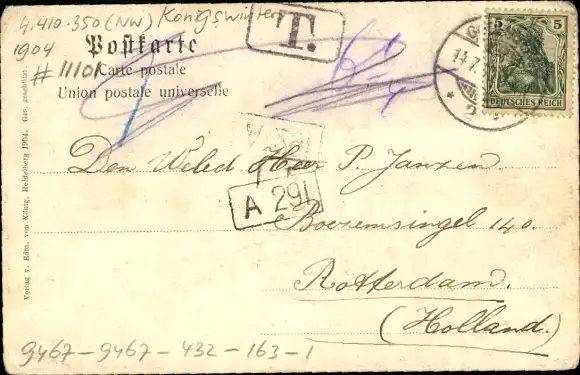 4.410.350 (NW) Königswinter
1904
# 11101
Postkarte
Carte postale
Union postale universelle
T.
5 5
DEUTSCHES REICH
14.7.
Den Weled Heer P. Janzen.
A 291
Boezemsingel 140.
Rotterdam.
(Holland.)
9467-9467-432-163-1
Verlag v. Edm. von König, Heidelberg 1904. Ges. geschützt.